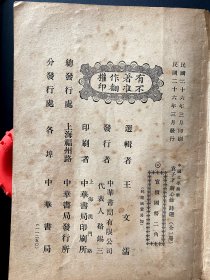 民國二十六年三月印刷
民國二十六年三月發行
有著作權
不准翻印
選輯者 王文濡
發行者 中華書局有限公司
代表人 路錫三
印刷者 上海澳門路
中華書局印刷所
總發行處 上海福州路
中華書局發行所
分發行處 各埠 中華書局